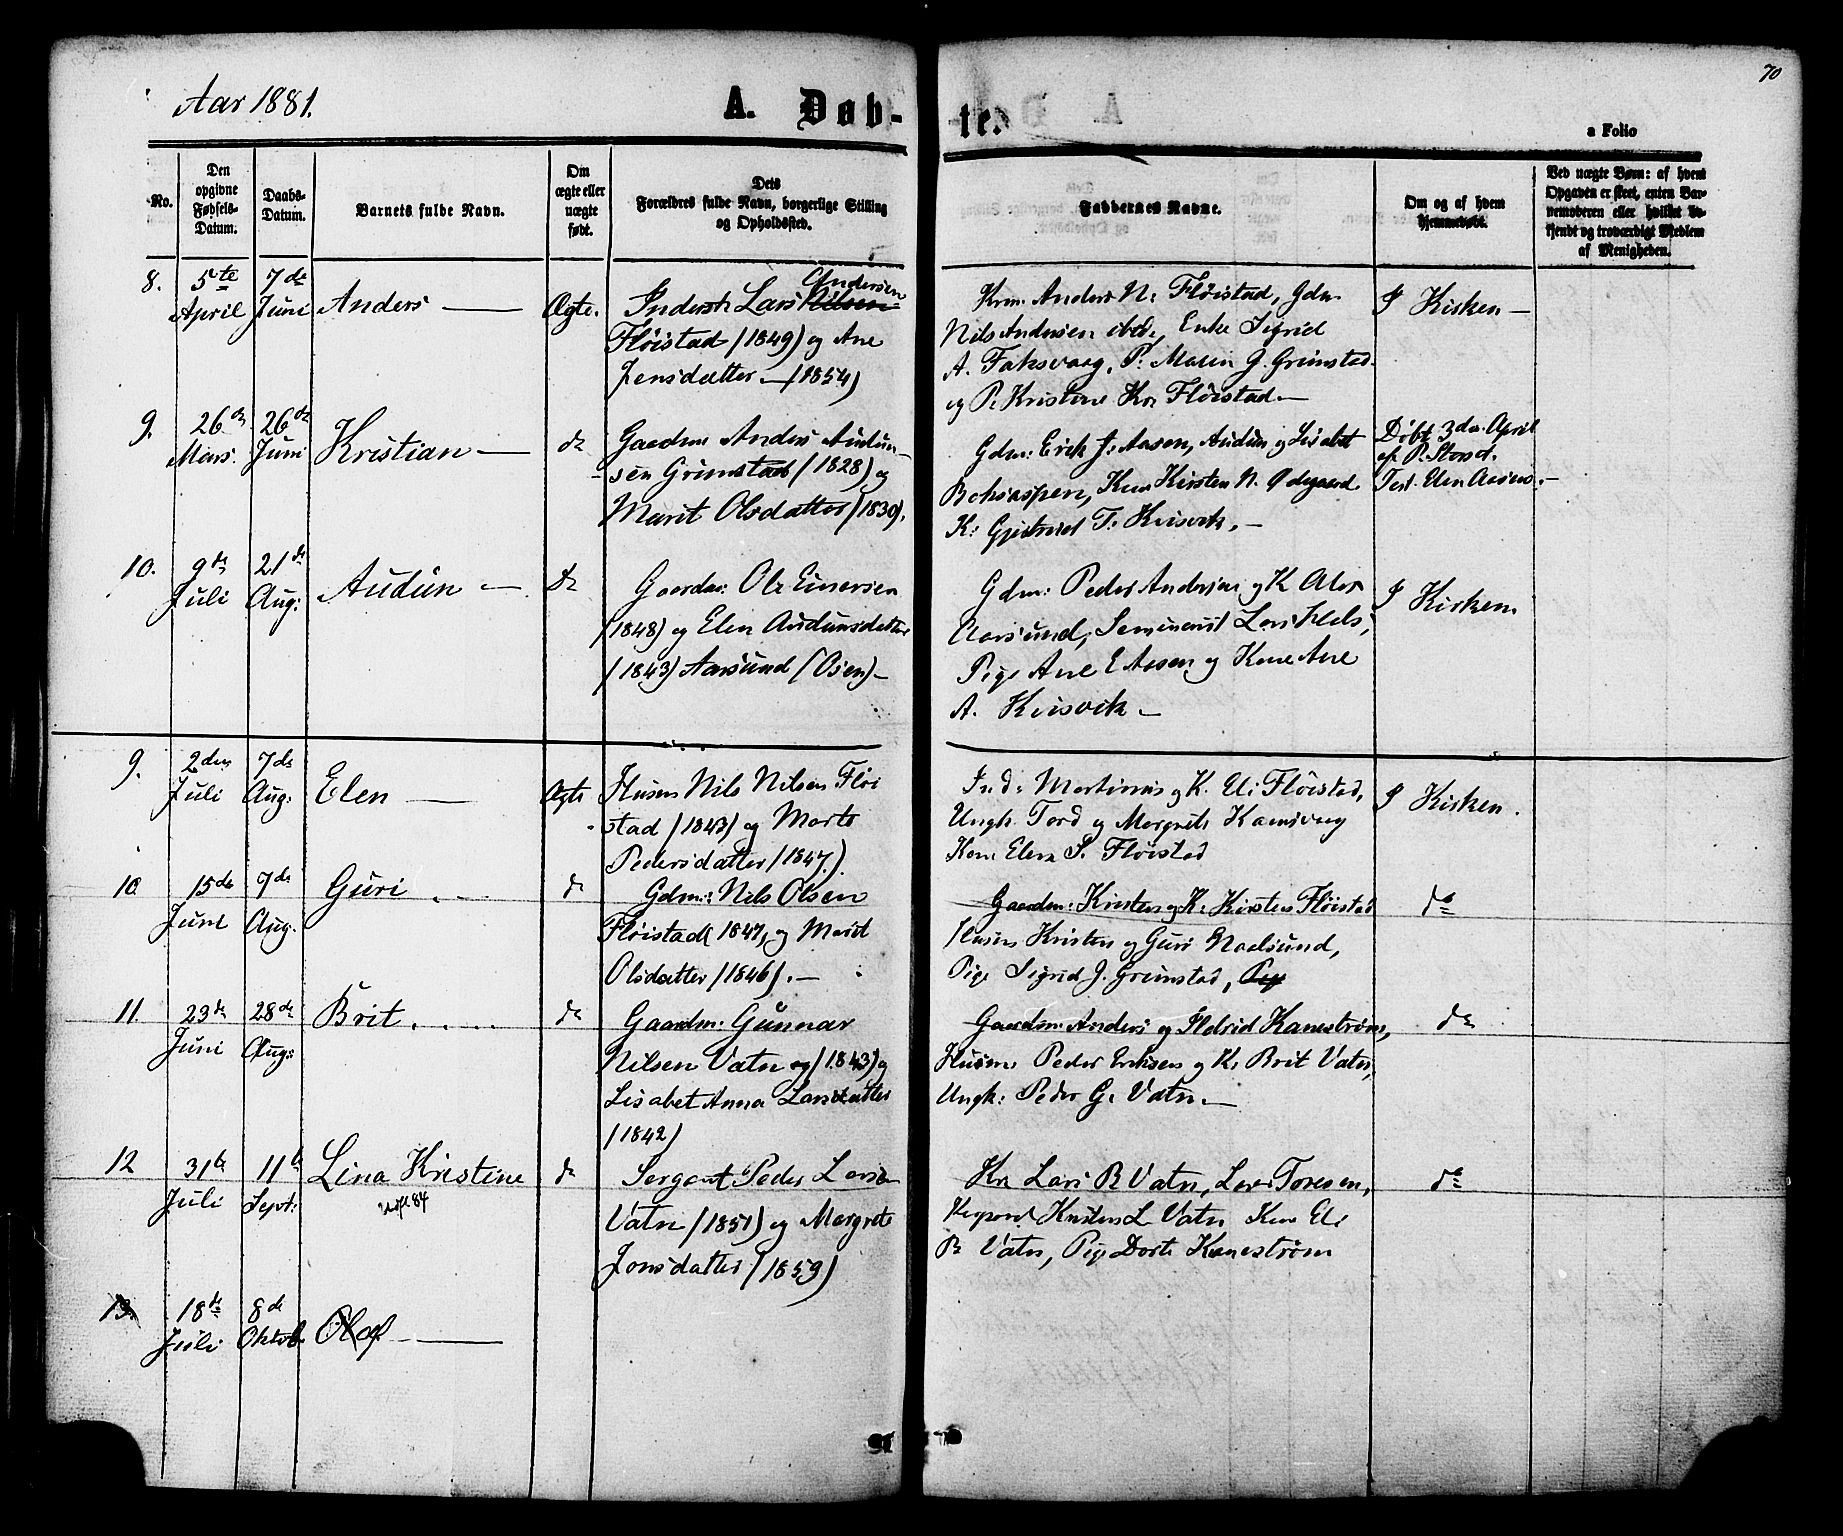 70
Aar 1881.
A. Døb-
te.
a Folio
No.
Den opgivne Fødsels-Datum.
Daabs-Datum.
Barnets fulde Navn.
Om ægte eller uægte født.
Dets Forældres fulde Navn, borgerlige Stilling og Opholdssted.
Faddernes Navne.
Om og af hvem hjemmedøbt.
Ved uægte Børn: af hvem Opgaven er skeet, enten Barnemoderen eller hvilket bekjendt og troværdigt Medlem af Menigheden.
8.
5te April
7de Juni
Anders —
Ægte.
Inderst Lars Nilsen Andersen
Fløistad (1849) og Ane
Jensdatter — (1854)
Anders N: Fløistad, Gdm.
Nils Andersen ibd., Enke Sigrid
A. Foksvaag, P. Maren G. Grimstad
og P. Kristine Kr. Fløistad. —
I Kirken —
9.
26de Mars.
26de Juni
Kristian —
do
Gaardm. Anders Audun-
sen Grimstad (1828) og
Marit Olsdatter (1839).
Gdm: Erik J: Aasen, Audun og Lisabet
Kone Kirsten N. Ødegaard
K: Gjertrud T: Kvisvik. —
Døbt 3die April
af P. Storsd.
Test. Elen Aasen. —
10.
9de Juli
21de Aug:
Audun —
do
Gaardm: Ole Einersen
(1848) og Elen Audunsdatter
(1843) Aarsund (Osen) —
Gdm: Peder Andersen og K
Aarsund, Seminarist Lars Hals,
Pige Ane E Aasen og Kone Ane
A. Kvisvik —
I Kirken
9.
2den Juli
7de Aug:
Elen —
Ægte
Husm Nils Nilsen Fløi
stad (1843) og Marte
Pedersdatter (1847.)
Ind: Martinus og K. Eli Fløistad,
Ungk. Tord og Margrete
Kone Elen S. Fløistad
I Kirken.
10.
15de Juni
7de Aug.
Guri
do
Gdm: Nils Olsen
Fløistad (1847, og Marit
Olsdatter (1846). —
Gaardm: Kristen og K: Kirsten Fløistad
Husm Kristen og Guri
Pige Sigrid J. Grimstad, Pige
do
11.
23de Juni
28de Aug:
Brit
do
Gaardm: Gunnar
Nilsen Vatn og (1843) og
Lisabet Anna Larsdatter
(1842)
Gaardm: Anders og Ildrid Kanestrøm,
Husm: Peder Eriksen og K. Brit Vatn,
Ungk: Peder G. Vatn. —
do
12
31te Juli
11te Sept:
Lina Kristine
do
Sergeant Peder Larsen
Vatn (1851) og Margrete
Jonsdatter (1859)
Lars P. Vatn, Lars Toresen,
Kristen L Vatn Kone Eli
P. Vatn, Pige Dorte Kanestrøm
do
13.
18de Juli
8de Oktob.
Olaf —